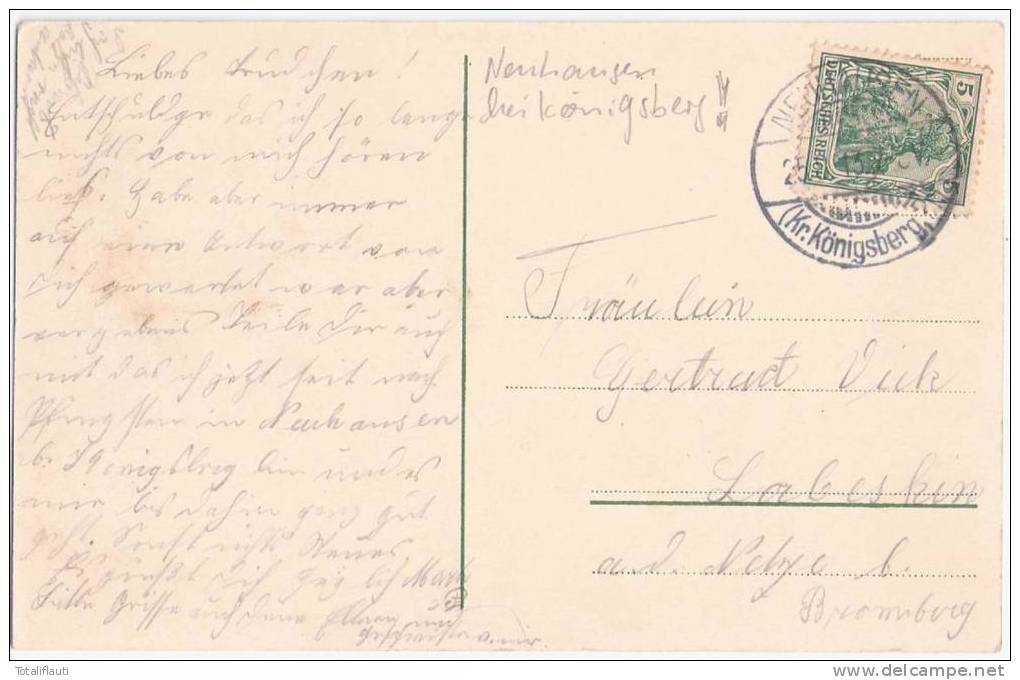 Liebes Trudchen!
Entschuldge das ich so lange
nichts von mich hören
ließ. Habe aber immer
auf eine Antwort von
Dich gewartet war aber
vergebens Teile Dir auch
mit das ich jetzt seit nach
Pfingsten in Neuhausen
b. Königsberg bin und es
mir bis dahin ganz gut
geht. Sonst nichts Neues.
Es grüßt Dich
Bitte Grüsse auch deine Eltern und
Geschwister v. mir.
Neuhausen
bei Königsberg!
5
DEUTSCHES REICH
5
(Kr. Königsberg)
Fräulein
Gertrud Vick
Labeskin
a. d. Netze b.
Bromberg
Totaliflauti
http://www.delcampe.net